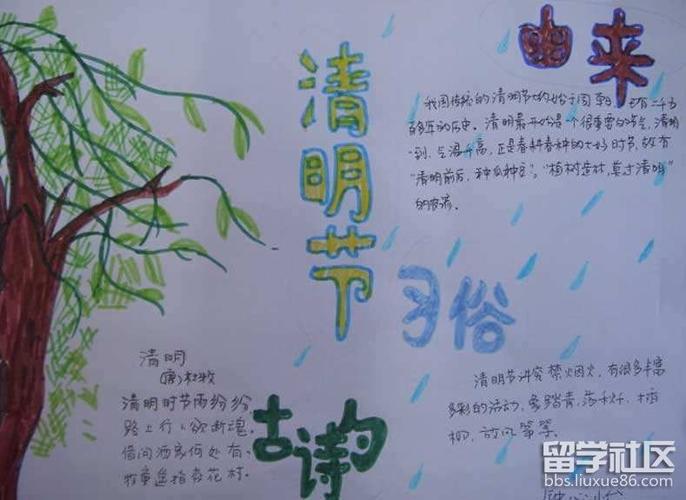 清明节
由来
我国传统的清明节大约始于周朝，已有二千五
百多年的历史。清明最开始是一个很重要的节气，清明
一到，气温升高，正是春耕春种的大好时节，故有
"清明前后，种瓜种豆"。"植树造林，莫过清明"
的农谚。
习俗
清明节讲究禁烟火，有很多丰富
多彩的活动，象踏青，荡秋千，
柳，放风筝等。
古诗
清明
(唐)杜牧
清明时节雨纷纷
路上行人欲断魂，
借问酒家何处有，
牧童遥指杏花村．
留学社区
bbs.liuxue86.com